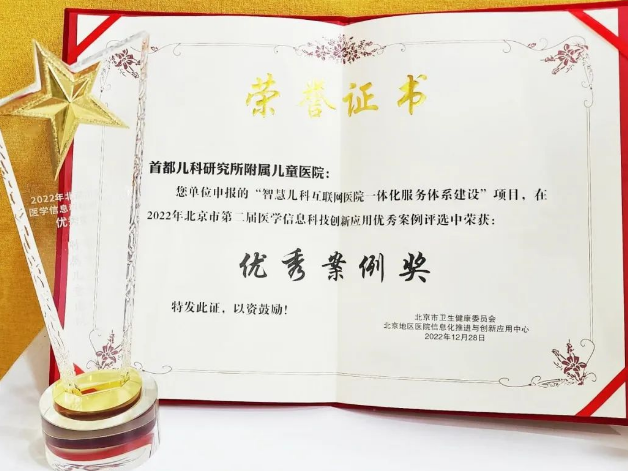 荣誉证书
首都儿科研究所附属儿童医院：
您单位申报的“智慧儿科互联网医院一体化服务体系建设”项目，在
2022年北京市第二届医学信息科技创新应用优秀案例评选中荣获：
优秀案例奖
特发此证，以资鼓励！
北京市卫生健康委员会
北京地区医院信息化推进与创新应用中心
2022年12月28日
2022年北
医学信息
优